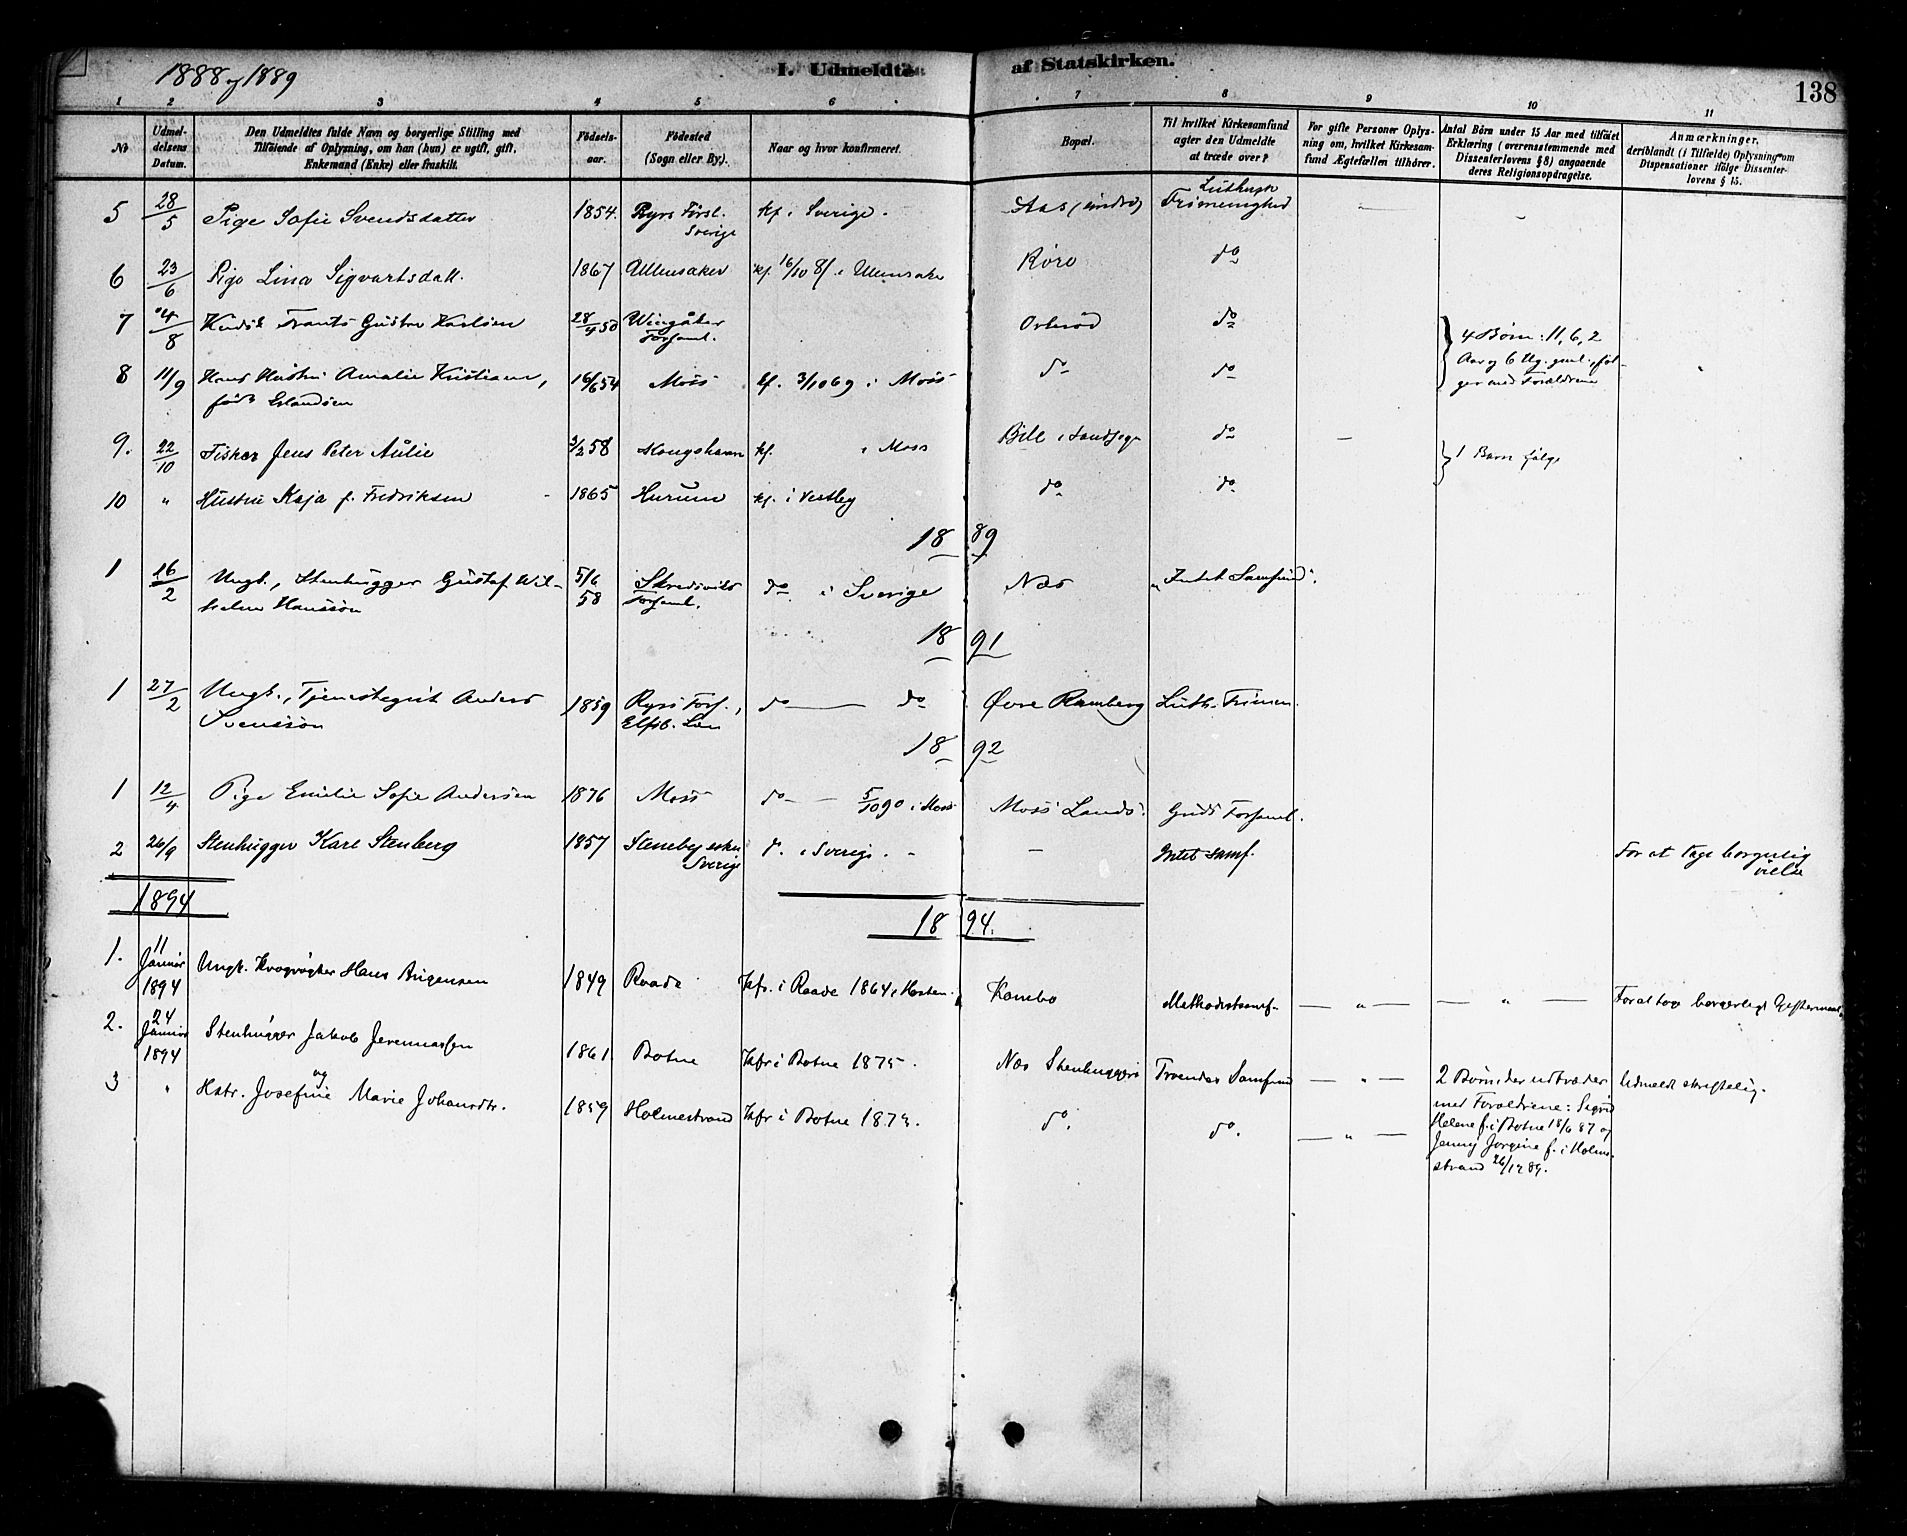 1888 og 1889
I. Udmeldte af Statskirken.
138
1 2 3 4 5 6 7 8 9 10 11
No
Udmeldelsens Datum.
Den Udmeldtes fulde Navn og borgerlige Stilling med
Tilføiende af Oplysning, om han (hun) er ugift, gift,
Enkemand (Enke) eller fraskilt.
Fødselsaar.
Fødested
(Sogn eller By).
Naar og hvor konfirmeret.
Bopæl.
Til hvilket Kirkesamfund
agter den Udmeldte
at træde over?
For gifte Personer Oplys-
ning om, hvilket Kirkesam-
fund Ægtefællen tilhører.
Antal Børn under 15 Aar med tilføiet
Erklæring (overensstemmende med
Dissenterlovens § 8) angaaende
deres Religionsopdragelse.
Anmærkninger,
deriblandt (i Tilfælde) Oplysning om
Dispensationer ifølge Dissenter-
lovens § 15.
5 28/5 Pige Sofie Svendsdatter 1854. Ryrs Førsl. Sverige kf. i Sverige. Aas Luthersk Frimenighed
6 23/6 Pige Lina Sigvartsdatt. 1867 Ullensaker kf. 16/10 81 i Ullensaker Røre do
7 4/8 Frants Gustav Karlsen 28/4 50 Wingåker Forsaml. Orkerød do 4 Børn: 11, 6, 2
Aar og 6 Ug. gml. føl-
ger med Forældrene
8 11/9 Hans Hustru Amalie Kristiane,
født Erlandsen 16/6 54 Moss kf. 3/10 69 i Moss do do
9. 22/10 Fisker Jens Peter Aulie 3/2 58 Kongshavn kf. i Moss Bile i Landsogn do 1 Barn følge
10 " Hustru Kaja f. Fredriksen 1865 Hurum kf. i Vestby do do
18 89
1 16/2 Ungk., Stenhugger Gustaf Wil-
helm Hanssøn 5/6 58 Skredsviks Forsaml. do i Sverige Næs "Intet Samfund".
18 91
1 27/2 Ungk., Tjenestegut Anders
Svenssøn 1859 Ryrs Fors., Elfsb. Län do do Øvre Ramberg Luth. Frimen.
18 92
1 12/4 Pige Emilie Sofie Andersen 1876 Moss do 5/10 90 i Moss Moss Lands. Guds Forsaml.
2 26/9 Stenhugger Karl Stenberg 1857 Steneby Sverige d. i Sverige. - Intet Samf. For at tage borgerlig
vielse
1894
18 94.
1. 11 Januar 1894 Ungk. Hans 1849 Raade kfr. i Raade 1864 Høsten Kambo Methodistsamf. — " — — " — For at tage borgerligt Giftermaal
2. 24 Januar 1894 Stenhugger Jakob Jeremiassen 1861 Botne kfr i Botne 1875. Næs Stenhuggeri Troendes Samfund — " — 2 Børn der udtræder
med Forældrene: Sigrid
Helene f. i Botne 18/6 87 og
Jenny Jorgine f. i Holme-
strand 26/12 89. Udmeldt skriftelig.
3 " Hstr. Josefine og Marie Johansdtr. 1859 Holmestrand kfr i Botne 1873. do. do. — " —